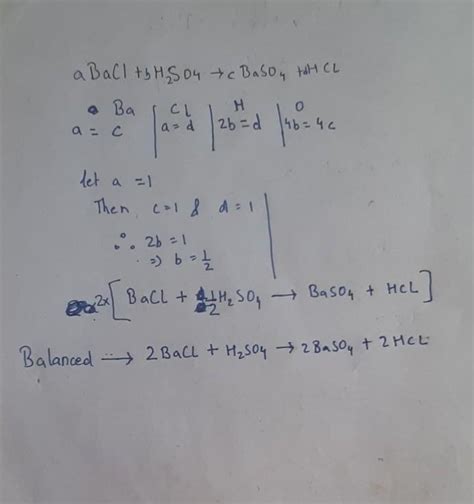 aBaCl + bH₂SO4 → cBaSO4 + dHCL
Ba | CL | H | O
a = c | a = d | 2b = d | 4b = 4c
let a = 1
Then, c = 1 & d = 1
∴ 2b = 1
=> b = 1/2
2x [ BaCl + 1/2 H₂SO4 → BaSO4 + HCL ]
Balanced → 2BaCl + H₂SO4 → 2BaSO4 + 2HCL